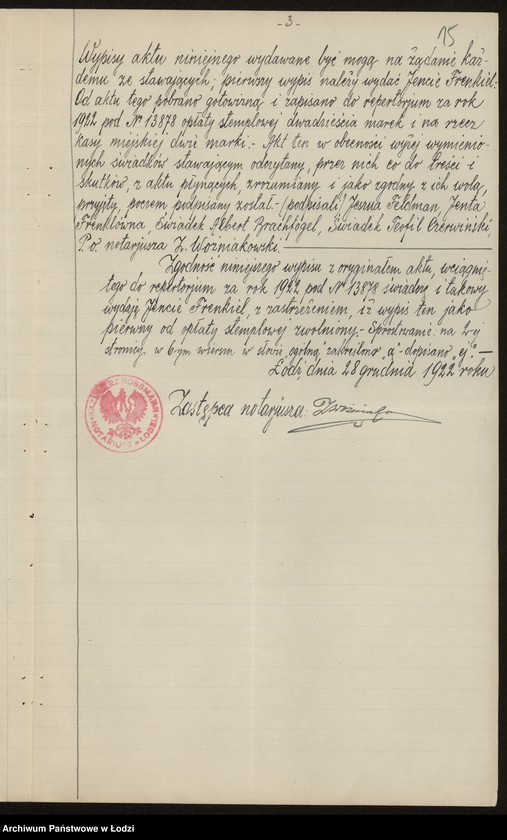 -3-
15
Wypisy aktu niniejszego wydawane być mogą na żądanie każ-
demu ze stawających; pierwszy wypis należy wydać Jencie Frenkiel.-
Od aktu tego pobrano gotowizną i zapisano do repertorjum za rok
1922 pod № 13878 opłaty stemplowej dwadzieścia marek i na rzecz
kasy miejskiej dwie marki.- Akt ten w obecności wyżej wymienio-
nych świadków stawającym odczytany, przez nich co do treści i
skutków, z aktu płynących, zrozumiany i jako zgodny z ich wolą,
przyjęty, poczem podpisany został.- /podpisali/ Jezua Feldman, Jenta
Frenklówna, Świadek Albert Brachfogel, Świadek Teofil Czerwiński,
P.o. notarjusza Z. Woźniakowski.
Zgodność niniejszego wypisu z oryginałem aktu, wciągnię-
tego do repertorjum za rok 1922 pod № 13878 świadczę i takowy
wydaję Jencie Frenkiel, z zastrzeżeniem, iż wypis ten jako
pierwszy od opłaty stemplowej zwolniony.- Sprostowanie: na 2-ej
stronicy, w 6-ym wierszu w słowie „ogólną" zakreślono „ą"- dopisano „ej".-
Łódź, dnia 28 grudnia 1922 roku
Zastępca notarjusza:
KAZIMIERZ ROSSMANN
NOTARIUSZ w ŁODZI
Archiwum Państwowe w Łodzi